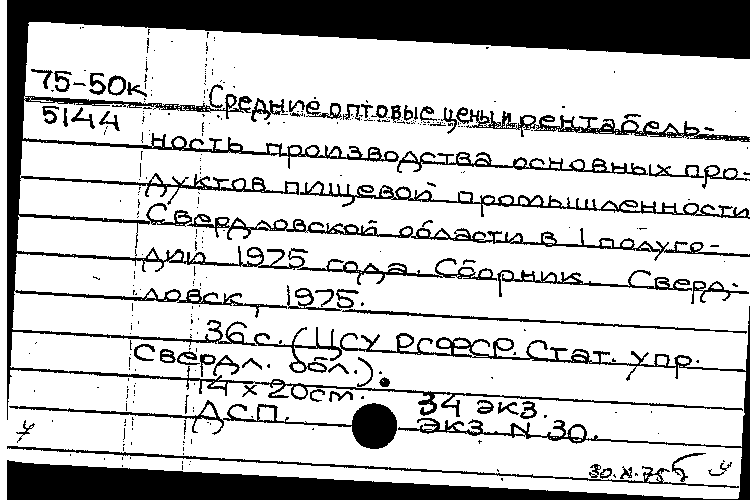 75-50к
5144
Средние оптовые цены и рентабель-
ность производства основных про-
дуктов пищевой промышленности
Свердловской области в I полуго-
дии 1975 года. Сборник. Сверд-
ловск, 1975.
36 с. (ЦСУ РСФСР. Стат. упр.
Свердл. обл.).
14 х 20см. 34 экз.
ДСП. экз. N 30.
30.X.75